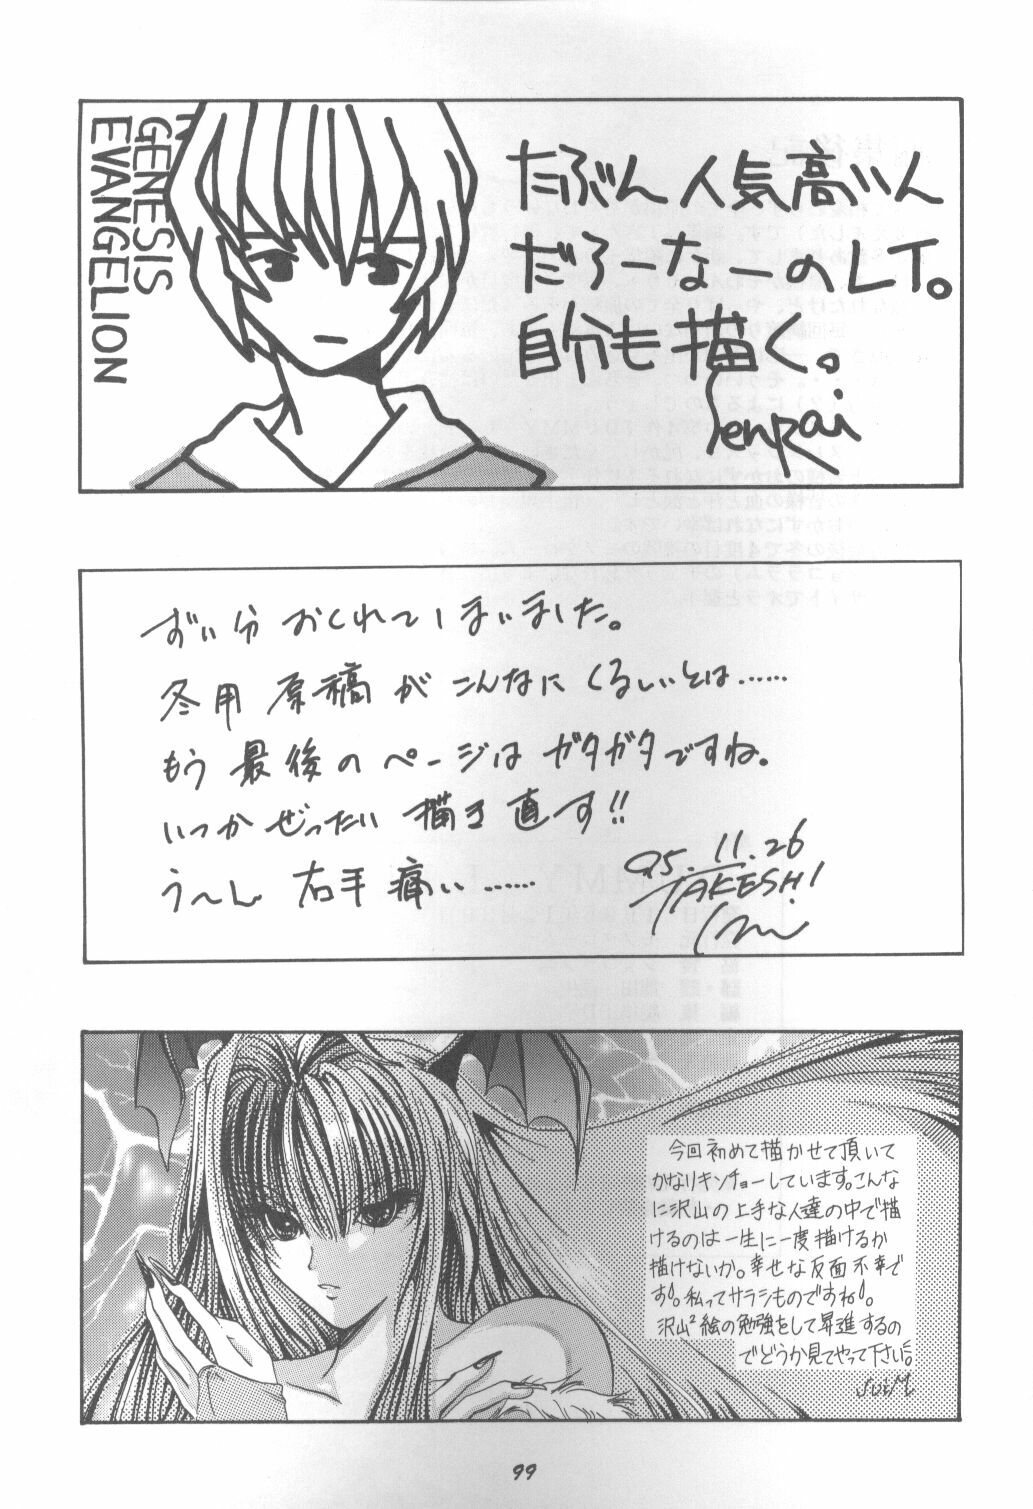 GENESIS
EVANGELION
たぶん人気高いん
だろーなーのLT。
自分も描く。
Senpai
ずい分おくれてしまいました。
冬用原稿がこんなにくるしいとは……
もう最後のページはガタガタですね。
いつかぜったい描き直す!!
う〜ん右手痛い……
95.11.26
TAKESHI
今回初めて描かせて頂いて
かなりキンチョーしています。こんな
に沢山の上手な人達の中で描
けるのは一生に一度描けるか
描けないか。幸せな反面不幸で
す!。私ってサラシものですね!。
沢山²絵の勉強をして昇進するの
でどうか見てやって下さい。
99